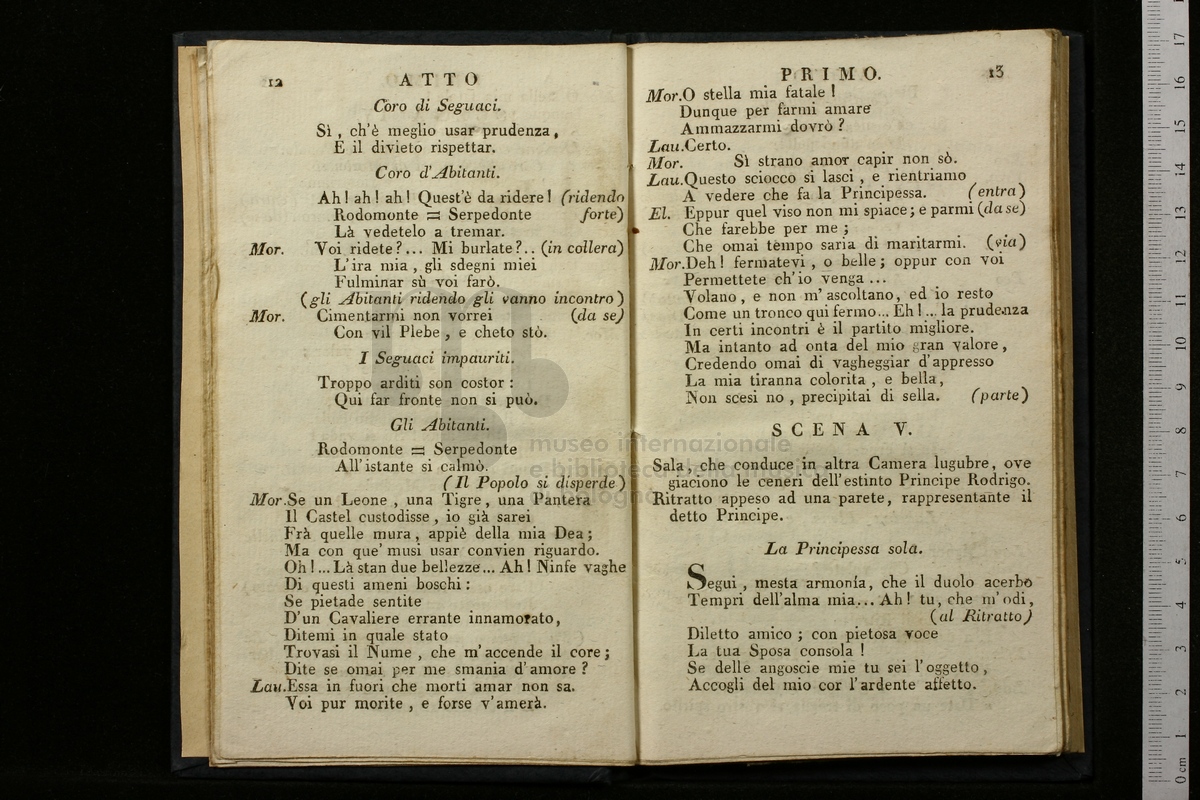 12 ATTO
Coro di Seguaci.
Sì, ch'è meglio usar prudenza,
E il divieto rispettar.
Coro d'Abitanti.
Ah! ah! ah! Quest'è da ridere! (ridendo
Rodomonte = Serpedonte forte)
Là vedetelo a tremar.
Mor. Voi ridete?... Mi burlate?.. (in collera)
L'ira mia, gli sdegni miei
Fulminar sù voi farò.
(gli Abitanti ridendo gli vanno incontro)
Mor. Cimentarmi non vorrei (da se)
Con vil Plebe, e cheto stò.
I Seguaci impauriti.
Troppo arditi son costor:
Qui far fronte non si può.
Gli Abitanti.
Rodomonte = Serpedonte
All'istante si calmò.
(Il Popolo si disperde)
Mor. Se un Leone, una Tigre, una Pantera
Il Castel custodisse, io già sarei
Frà quelle mura, appiè della mia Dea;
Ma con que' musi usar convien riguardo.
Oh!... Là stan due bellezze... Ah! Ninfe vaghe
Di questi ameni boschi:
Se pietade sentite
D'un Cavaliere errante innamorato,
Ditemi in quale stato
Trovasi il Nume, che m'accende il core;
Dite se omai per me smania d'amore?
Lau. Essa in fuori che morti amar non sa.
Voi pur morite, e forse v'amerà.
PRIMO. 13
Mor. O stella mia fatale!
Dunque per farmi amare
Ammazzarmi dovrò?
Lau. Certo.
Mor. Sì strano amor capir non sò.
Lau. Questo sciocco si lasci, e rientriamo
A vedere che fa la Principessa. (entra)
El. Eppur quel viso non mi spiace; e parmi (da se)
Che farebbe per me;
Che omai tempo saria di maritarmi. (via)
Mor. Deh! fermatevi, o belle; oppur con voi
Permettete ch'io venga...
Volano, e non m'ascoltano, ed io resto
Come un tronco qui fermo... Eh!... la prudenza
In certi incontri è il partito migliore.
Ma intanto ad onta del mio gran valore,
Credendo omai di vagheggiar d'appresso
La mia tiranna colorita, e bella,
Non scesi no, precipitai di sella. (parte)
SCENA V.
Sala, che conduce in altra Camera lugubre, ove
giaciono le ceneri dell'estinto Principe Rodrigo.
Ritratto appeso ad una parete, rappresentante il
detto Principe.
La Principessa sola.
Segui, mesta armonía, che il duolo acerbo
Tempri dell'alma mia... Ah! tu, che m'odi,
(al Ritratto)
Diletto amico; con pietosa voce
La tua Sposa consola!
Se delle angoscie mie tu sei l'oggetto,
Accogli del mio cor l'ardente affetto.
museo internazionale
e biblioteca della musica
0 cm 1 2 3 4 5 6 7 8 9 10 11 12 13 14 15 16 17